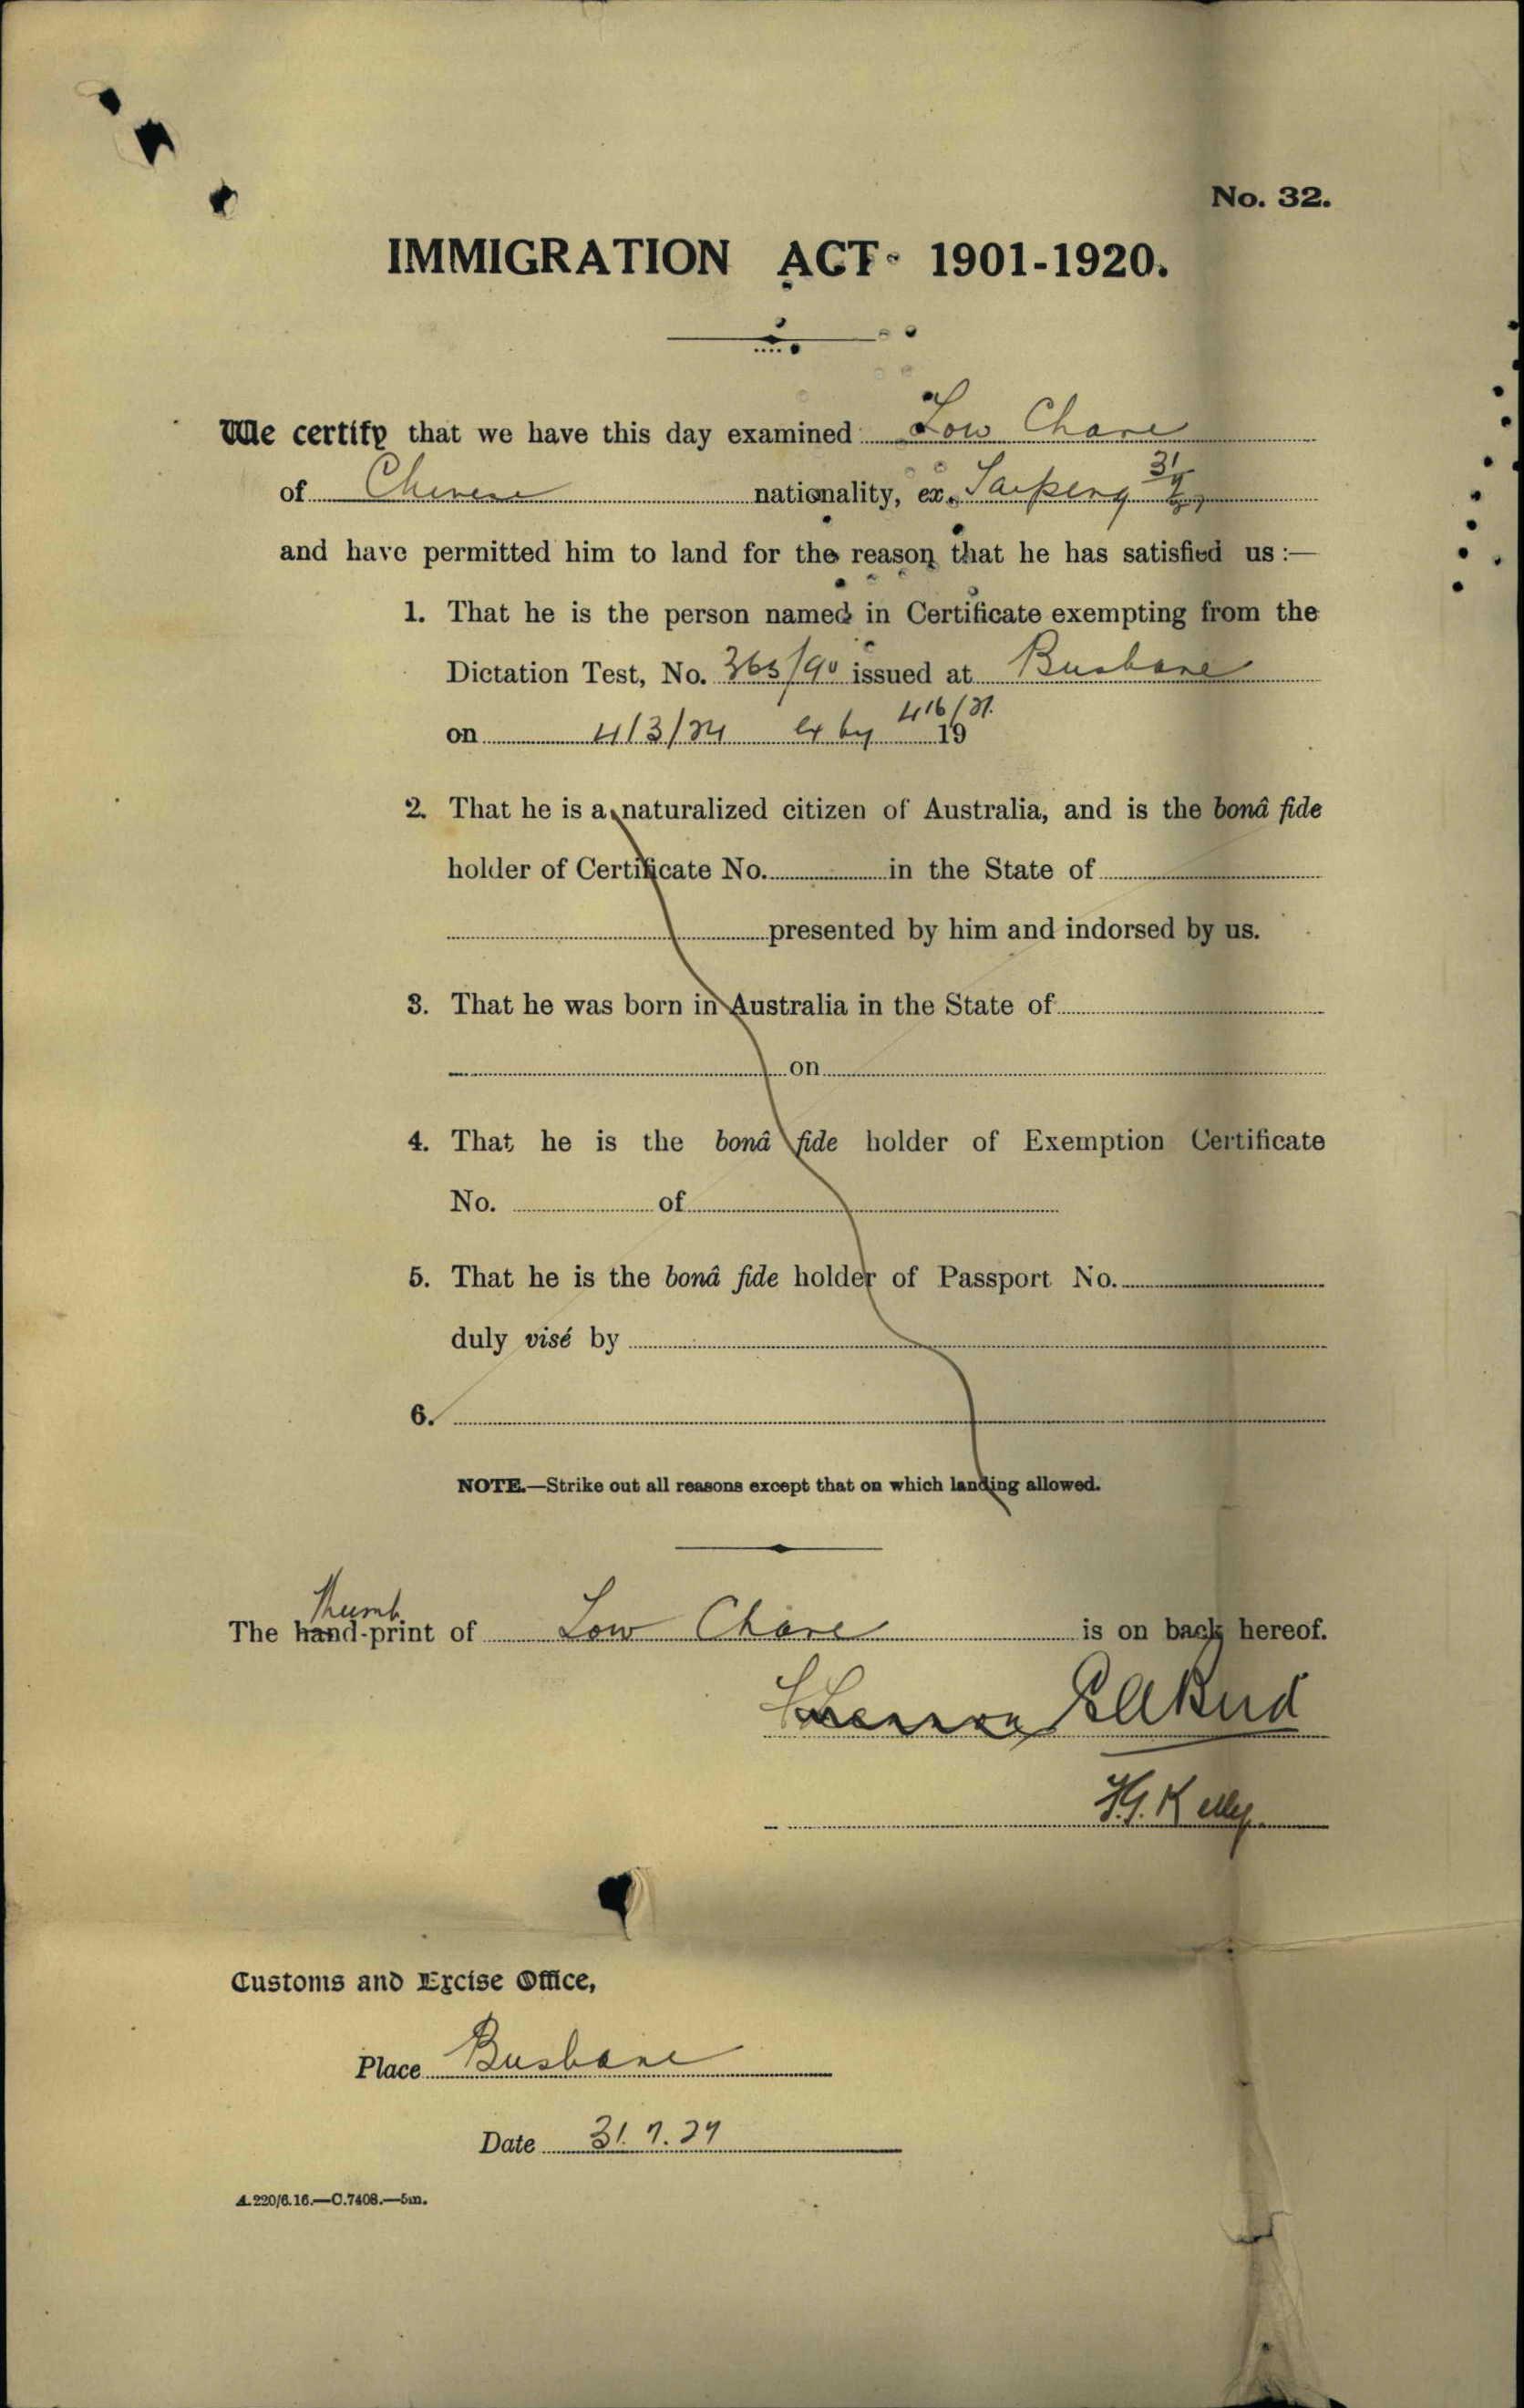 No. 32.
IMMIGRATION ACT 1901-1920.
We certify that we have this day examined Low Chare
of Chinese nationality, ex. Taiping 31/7
and have permitted him to land for the reason that he has satisfied us :—
1. That he is the person named in Certificate exempting from the
Dictation Test, No. 365/90 issued at Brisbane
4/6/27.
on 4/3/24 ex by 19
2. That he is a naturalized citizen of Australia, and is the bonâ fide
holder of Certificate No. in the State of
presented by him and indorsed by us.
3. That he was born in Australia in the State of
on
4. That he is the bonâ fide holder of Exemption Certificate
No. of
5. That he is the bonâ fide holder of Passport No.
duly visé by
6.
NOTE.—Strike out all reasons except that on which landing allowed.
Thumb
The hand-print of Low Chare is on back hereof.
Kelly
Customs and Excise Office,
Place Brisbane
Date 31.7.27
A.220/6.16.—C.7408.—5m.